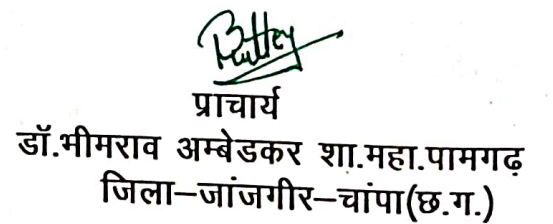 प्राचार्य
डॉ.भीमराव अम्बेडकर शा.महा.पामगढ़
जिला–जांजगीर–चांपा(छ.ग.)